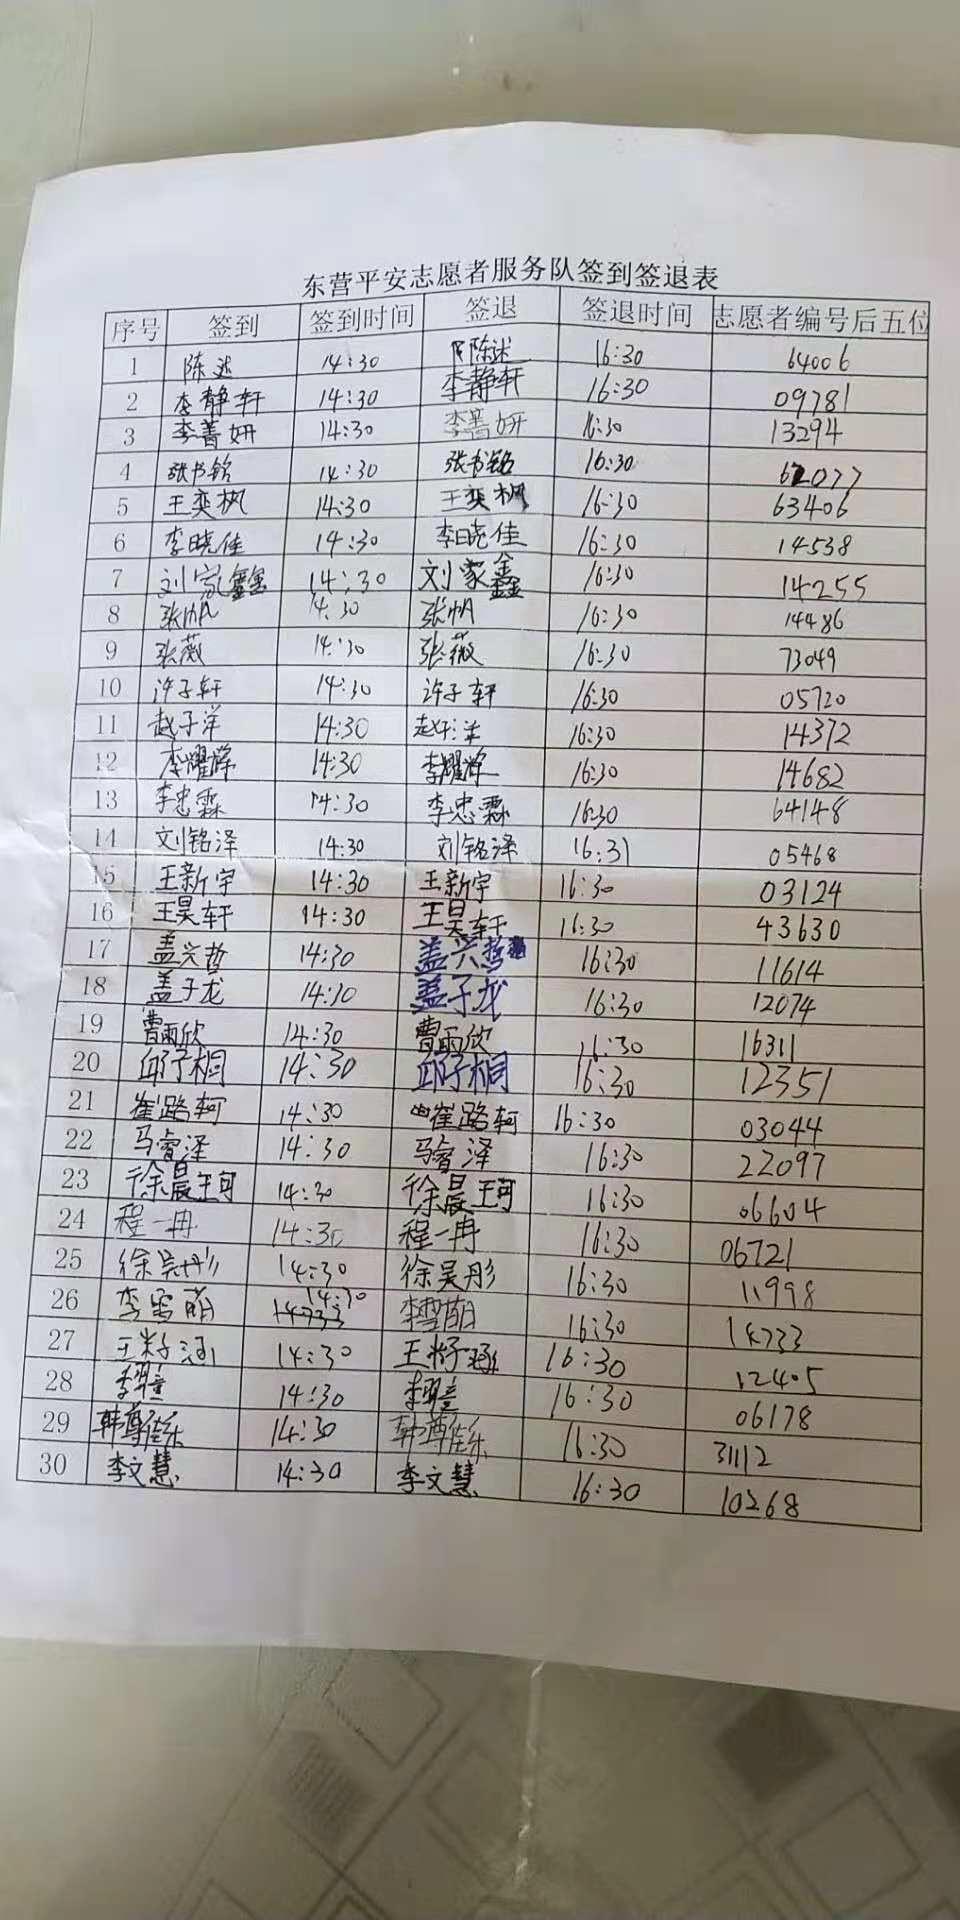 东营平安志愿者服务队签到签退表
序号 签到 签到时间 签退 签退时间 志愿者编号后五位
1 陈述 14:30 陈述 16:30 64006
2 李静轩 14:30 李静轩 16:30 09781
3 李菁妍 14:30 李菁妍 16:30 13294
4 张书铭 14:30 张书铭 16:30 62077
5 王奕枫 14:30 王奕枫 16:30 63406
6 李晓佳 14:30 李晓佳 16:30 14538
7 刘家鑫 14:30 刘家鑫 16:30 14255
8 张帆 14:30 张帆 16:30 14486
9 张薇 14:30 张薇 16:30 73049
10 许子轩 14:30 许子轩 16:30 05720
11 赵子洋 14:30 赵子洋 16:30 14372
12 李耀辉 14:30 李耀辉 16:30 14682
13 李忠霖 14:30 李忠霖 16:30 64148
14 刘铭泽 14:30 刘铭泽 16:31 05468
15 王新宇 14:30 王新宇 16:30 03124
16 王昊轩 14:30 王昊轩 16:30 43630
17 盖兴哲 14:30 盖兴哲 16:30 11614
18 盖子龙 14:30 盖子龙 16:30 12074
19 曹雨欣 14:30 曹雨欣 16:30 16311
20 邱子桐 14:30 邱子桐 16:30 12351
21 崔路轲 14:30 崔路轲 16:30 03044
22 马睿泽 14:30 马睿泽 16:30 22097
23 徐晨珂 14:30 徐晨珂 16:30 06604
24 程一冉 14:30 程一冉 16:30 06721
25 徐吴彤 14:30 徐吴彤 16:30 11998
26 李雪萌 14:30 李雪萌 16:30 14733
27 王籽涵 14:30 王籽涵 16:30 12405
28 14:30 16:30 06178
29 韩尊佳乐 14:30 韩尊佳乐 16:30 31112
30 李文慧 14:30 李文慧 16:30 10268